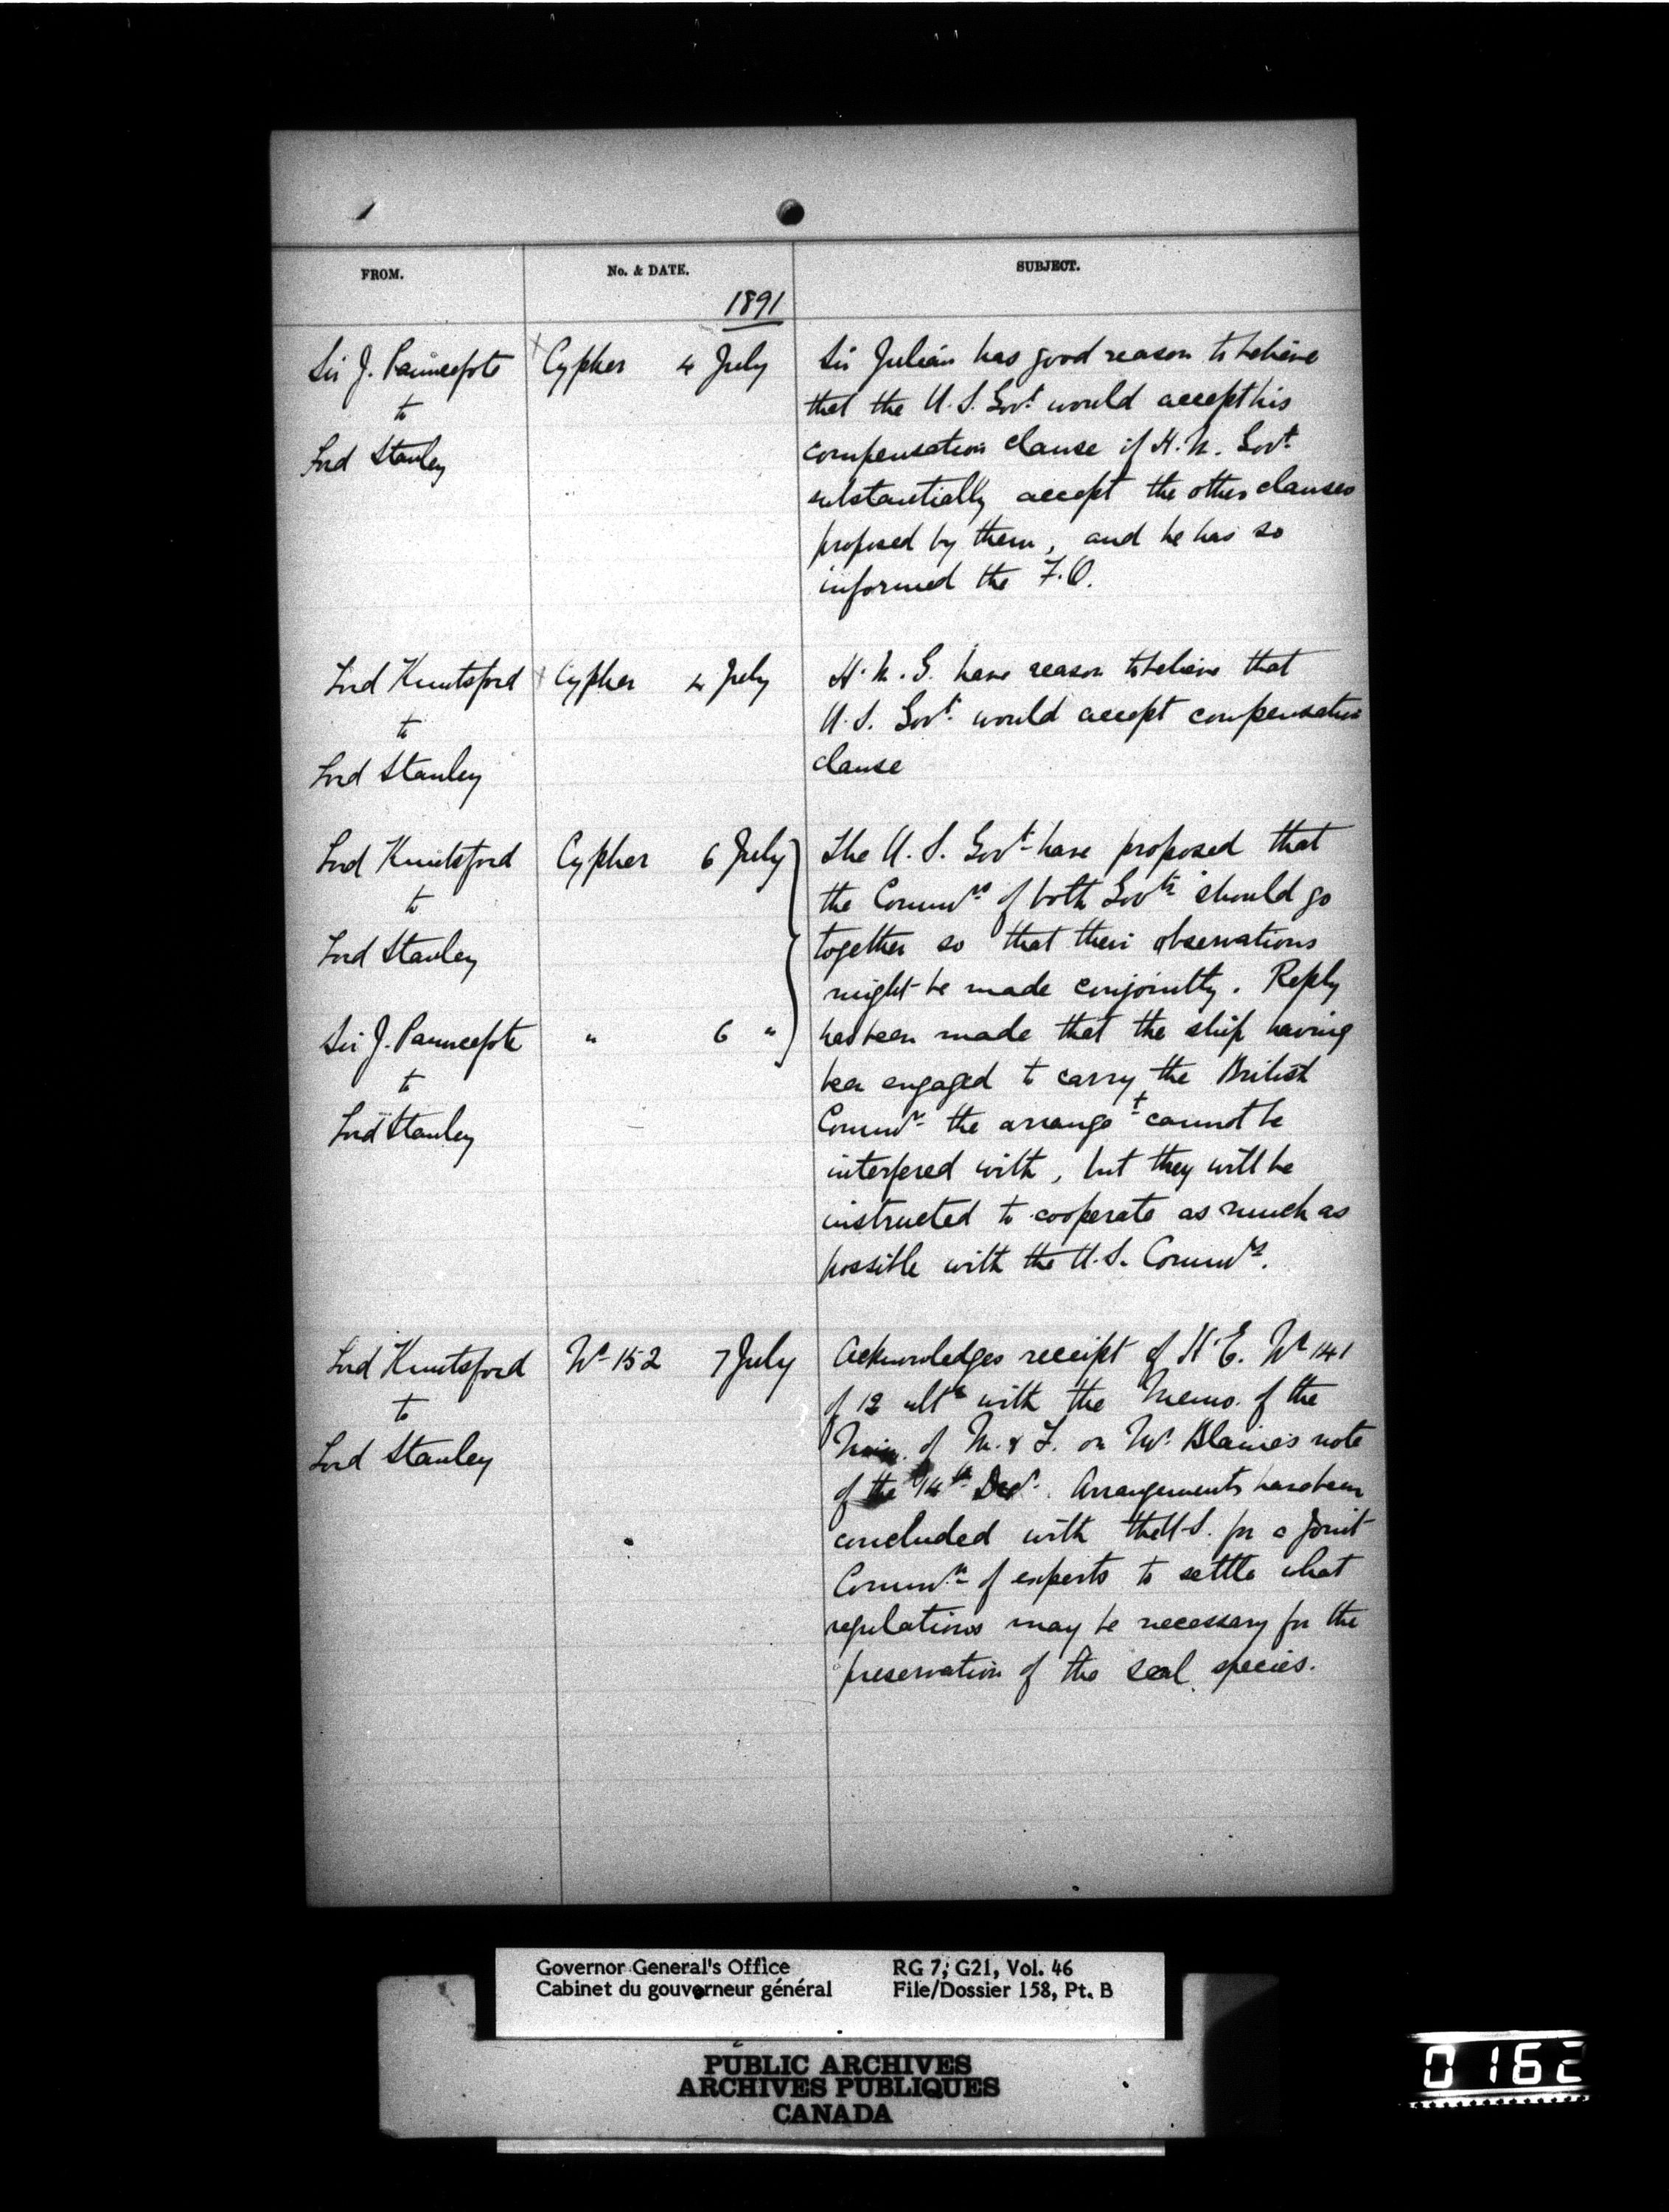 FROM.
No. & DATE.
SUBJECT.
1891
Sir J. Pauncefote
to
Lord Stanley
Cypher 4 July
Sir Julian has good reason to believe
that the U.S. Govt. would accept his
compensation clause if H.M. Govt.
substantially accept the other clauses
proposed by them, and he has so
informed the F.O.
Lord Knutsford
to
Lord Stanley
Cypher 4 July
H.M.G. have reason to believe that
U.S. Govt. would accept compensation
clause
Lord Knutsford
to
Lord Stanley
Cypher 6 July
Sir J. Pauncefote
to
Lord Stanley
" 6 "
The U.S. Govt. have proposed that
the Commrs of both Govts should go
together so that their observations
might be made conjointly. Reply
has been made that the ship having
been engaged to carry the British
Commrs the arranget cannot be
interfered with, but they will be
instructed to cooperate as much as
possible with the U.S. Commrs.
Lord Knutsford
to
Lord Stanley
No 152 7 July
Acknowledges receipt of H.E. No 141
of 12 ulto with the Memo. of the
Min. of M. & F. on Mr. Blaine's note
of the 14th Decr. Arrangements have been
concluded with the U.S. for a Joint
Commn of experts to settle what
regulations may be necessary for the
preservation of the seal species.
Governor General's Office
Cabinet du gouverneur général
RG 7, G21, Vol. 46
File/Dossier 158, Pt. B
PUBLIC ARCHIVES
ARCHIVES PUBLIQUES
CANADA
0162